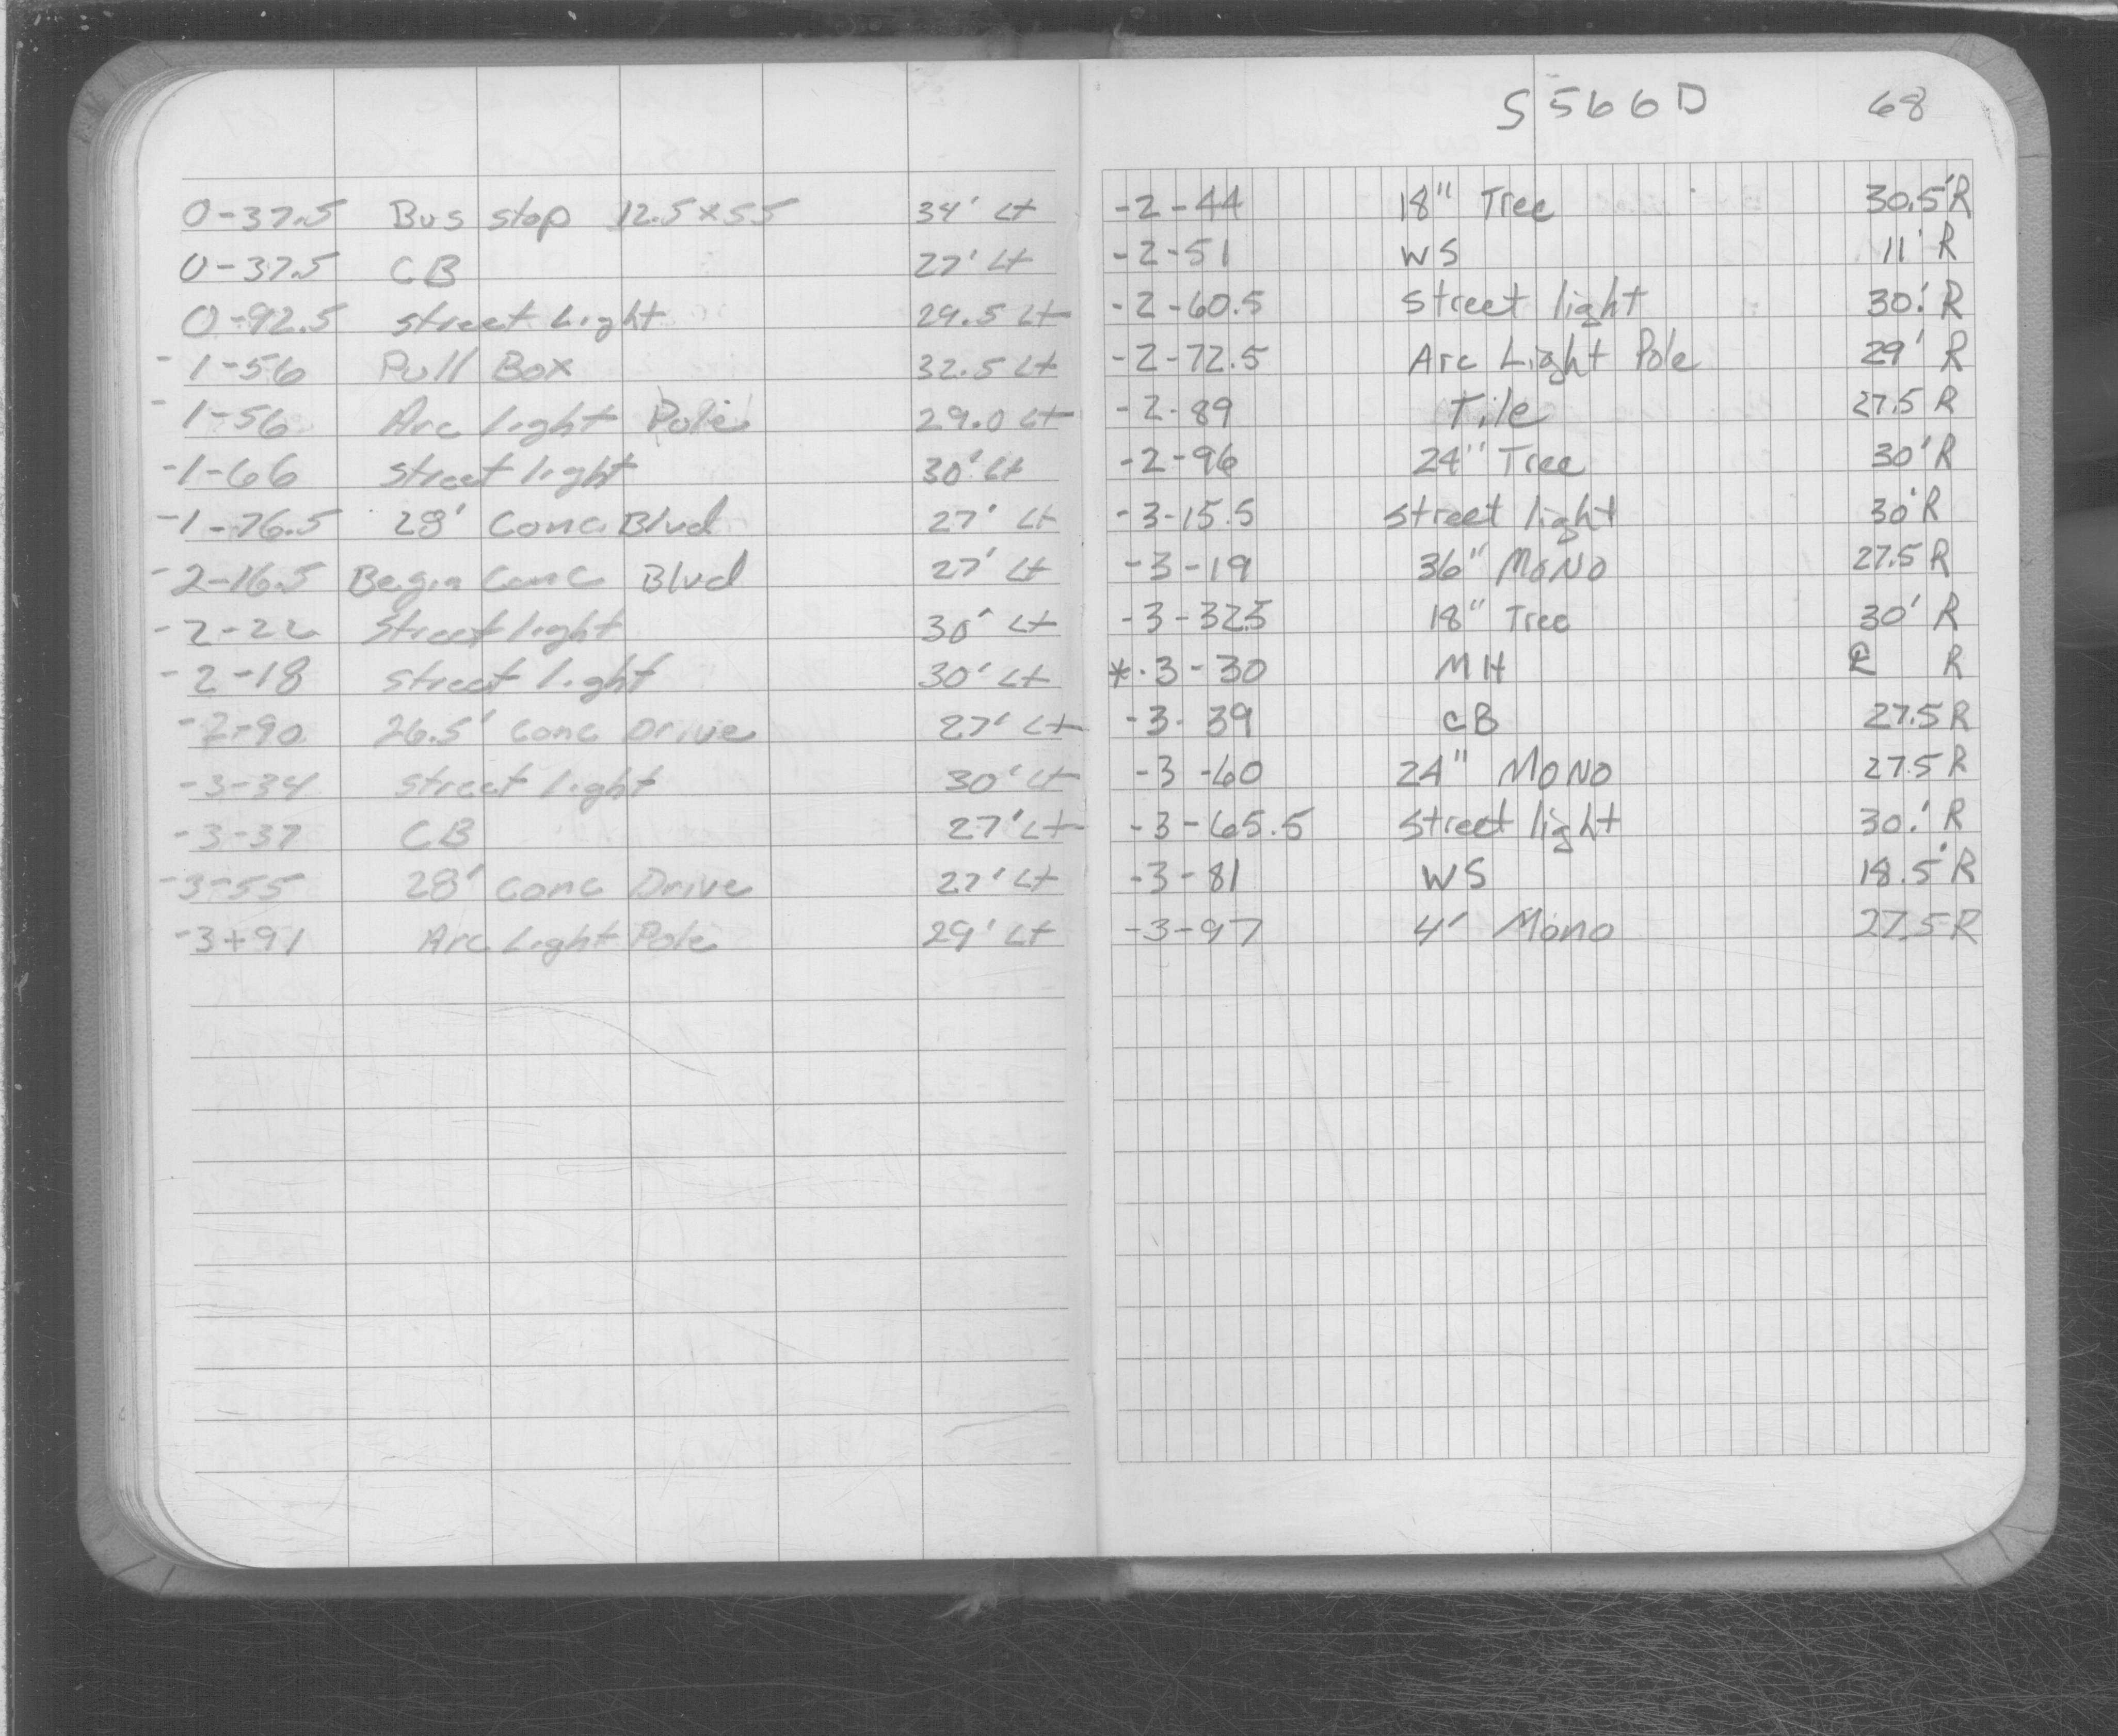 0-37.5 Bus stop 12.5x55 34' Lt
0-37.5 CB 27' Lt
0-92.5 street Light 29.5 Lt
-1-56 Pull Box 32.5 Lt
-1-56 Arc light Pole 29.0 Lt
-1-66 street light 30' Lt
-1-76.5 28' Conc Blvd 27' Lt
-2-16.5 Begin Conc Blvd 27' Lt
-2-22 Street light 30' Lt
-2-18 street light 30' Lt
-2-90 26.5' Conc Drive 27' Lt
-3-34 street light 30' Lt
-3-37 CB 27' Lt
-3-55 28' Conc Drive 27' Lt
-3+91 Arc Light Pole 29' Lt
S566D 68
-2-44 18" Tree 30.5' R
-2-51 WS 11' R
-2-60.5 Street light 30.' R
-2-72.5 Arc Light Pole 29' R
-2-89 Tile 27.5 R
-2-96 24" Tree 30' R
-3-15.5 street light 30' R
-3-19 36" MONO 27.5 R
-3-32.5 18" Tree 30' R
*-3-30 MH R
-3-39 CB 27.5 R
-3-60 24" MONO 27.5 R
-3-65.5 Street light 30.' R
-3-81 WS 18.5' R
-3-97 4' Mono 27.5 R